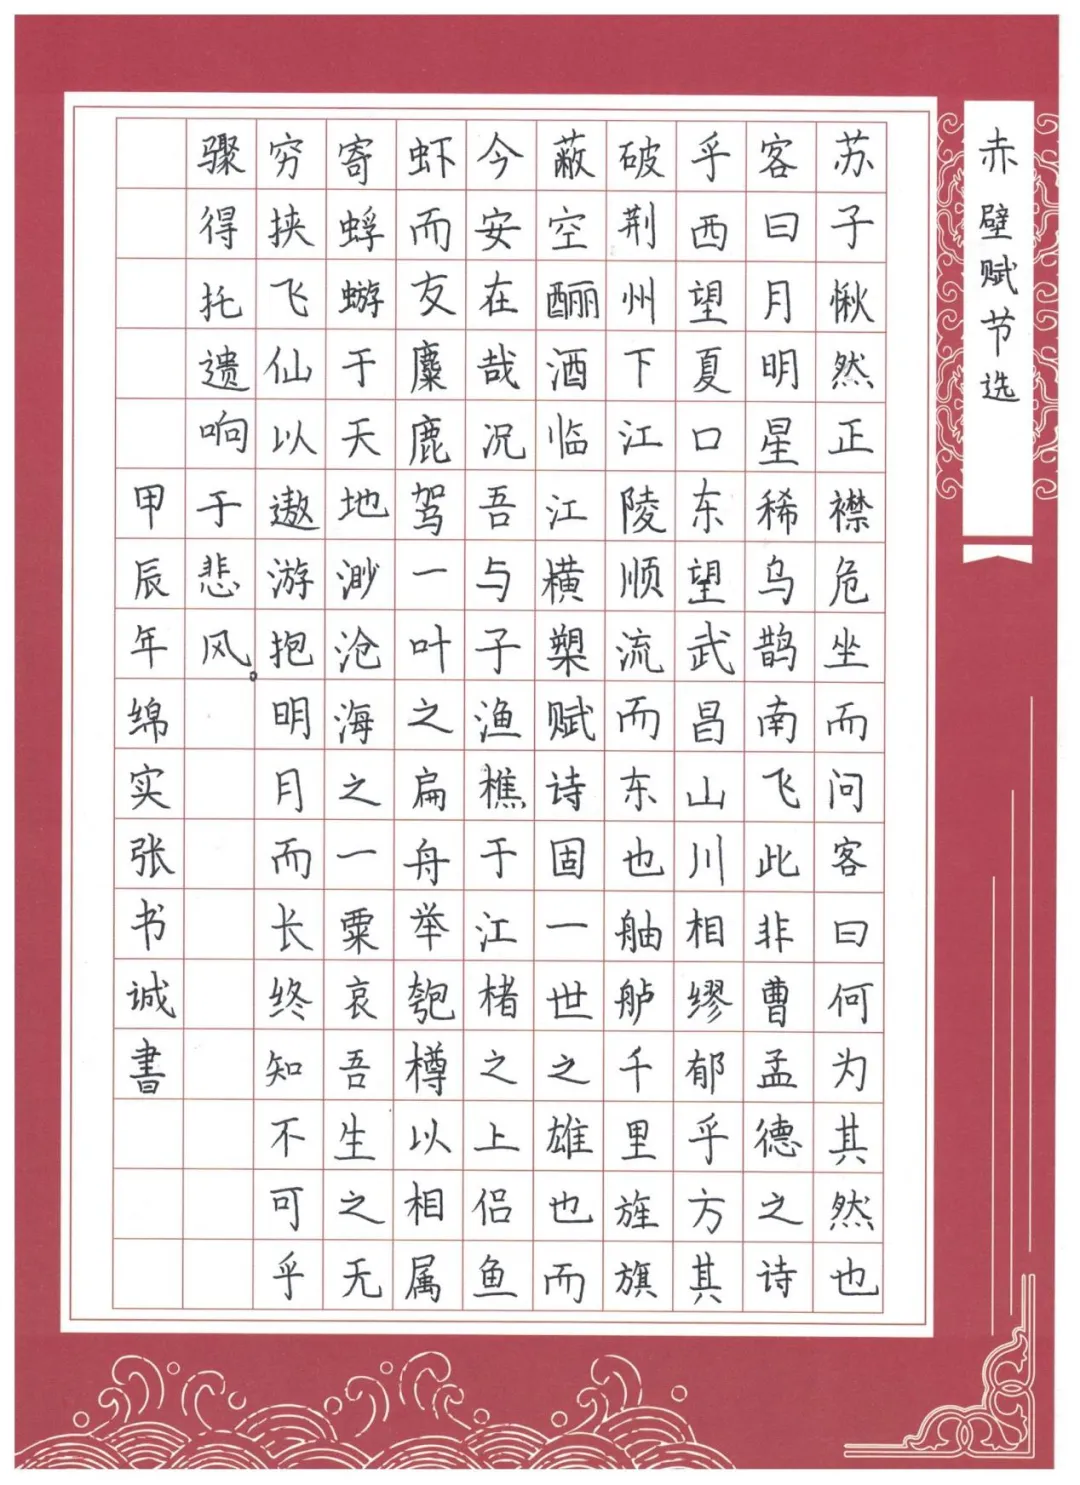 赤壁赋节选
苏子愀然正襟危坐而问客曰何为其然也
客曰月明星稀乌鹊南飞此非曹孟德之诗
乎西望夏口东望武昌山川相缪郁乎方其
破荆州下江陵顺流而东也舳舻千里旌旗
蔽空酾酒临江横槊赋诗固一世之雄也而
今安在哉况吾与子渔樵于江楮之上侣鱼
虾而友麋鹿驾一叶之扁舟举匏樽以相属
寄蜉蝣于天地渺沧海之一粟哀吾生之无
穷挟飞仙以遨游抱明月而长终知不可乎
骤得托遗响于悲风。
甲辰年绵实张书诚書